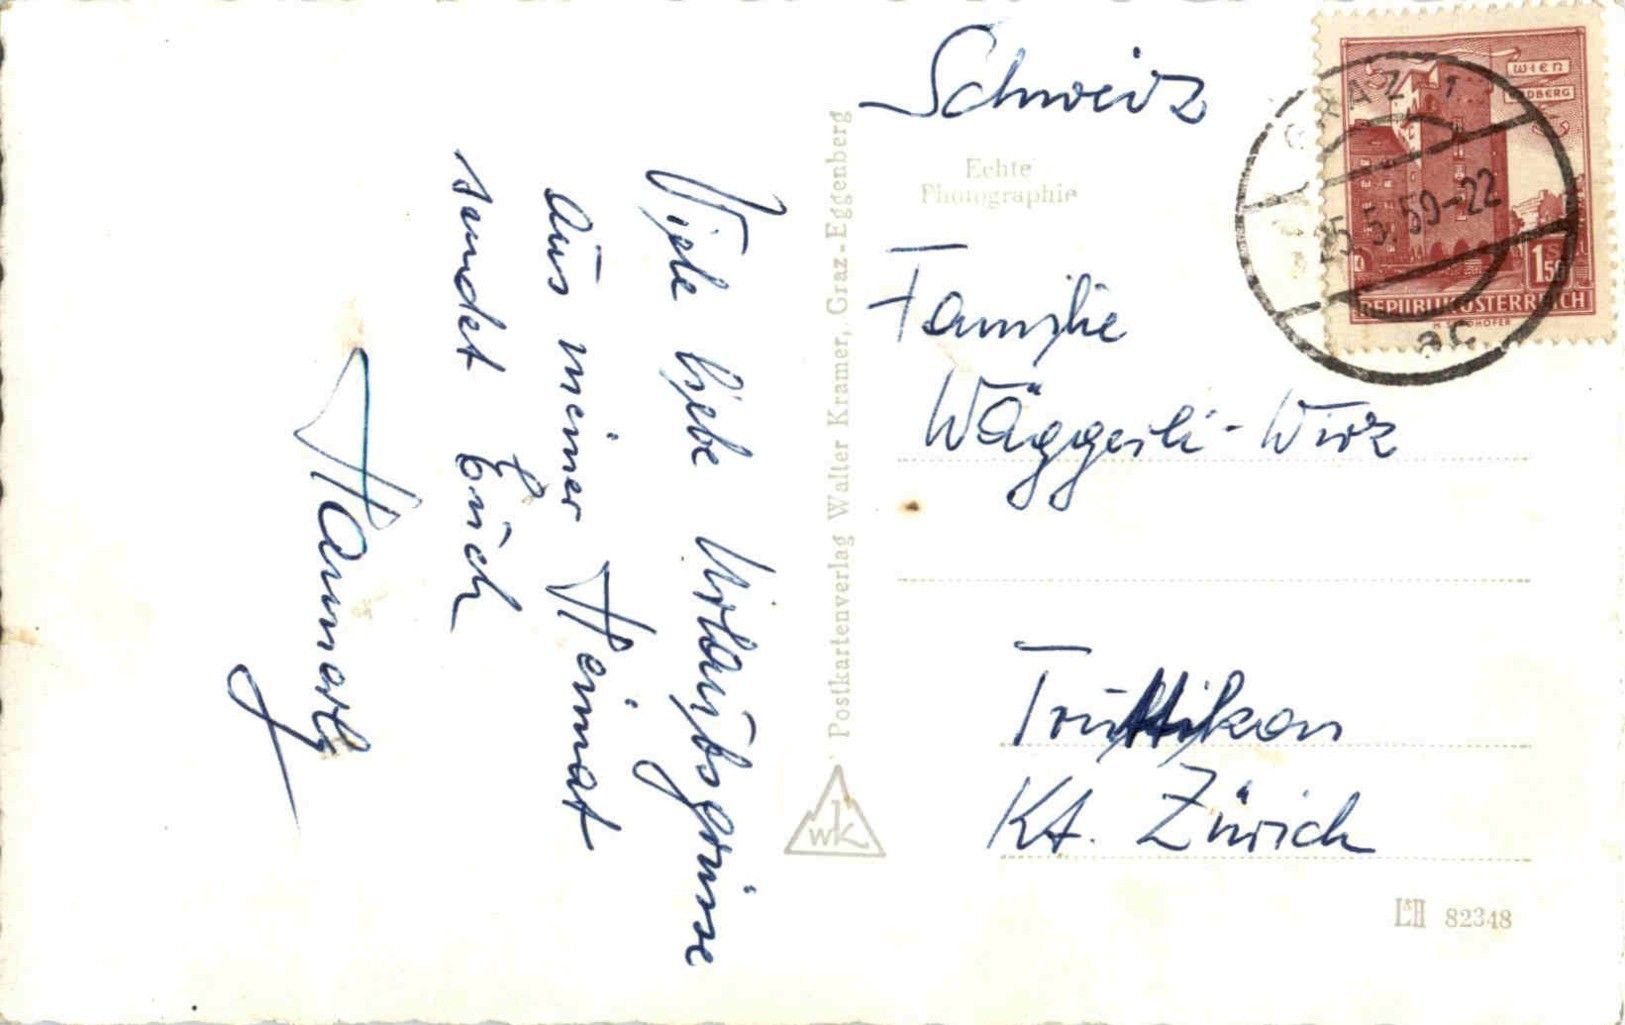 Viele liebe Urlaubsgrüsse
aus meiner Heimat
sendet Euch
Schweiz
Echte
Photographie
Familie
Wäggerli-Wirz
Trüttikon
Kt. Zürich
Postkartenverlag Walter Kramer, Graz-Eggenberg
wk
L&H 82348
WIEN
REPUBLIK ÖSTERREICH
1 50
GRAZ 1
25.5.59-22
ac